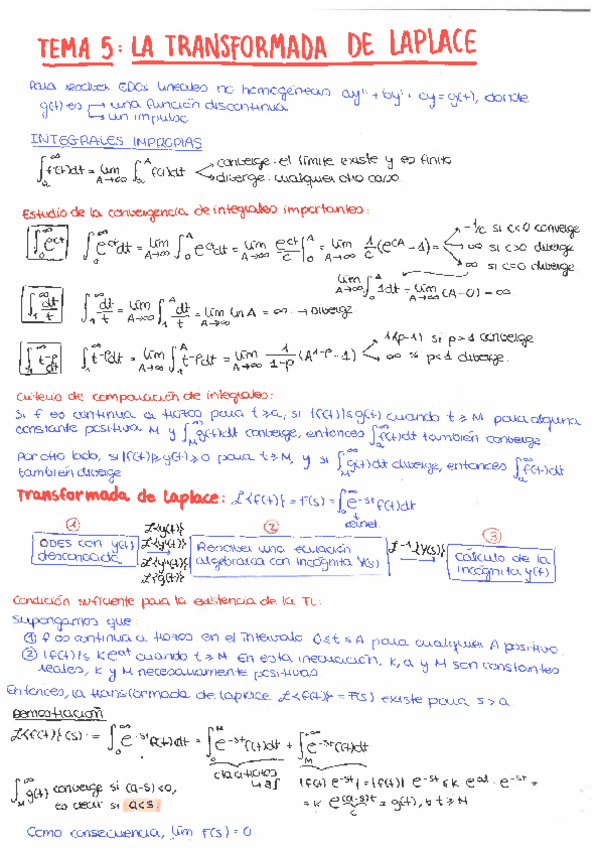 TEMA 5: LA TRANSFORMADA DE LAPLACE
Para resolver EDOs lineales no homogéneas ay'' + by' + cy = g(t), donde
g(t) es → una función discontinua
→ un impulso
INTEGRALES IMPROPIAS
∫_a^∞ f(t)dt = lim_{A→∞} ∫_a^A f(t)dt converge: el límite existe y es finito
diverge: cualquier otro caso.
Estudio de la convergencia de integrales importantes:
∫_0^∞ e^{ct} ∫_0^∞ e^{ct}dt = lim_{A→∞} ∫_0^A e^{ct}dt = lim_{A→∞} e^{ct}/c |_0^A = lim_{A→∞} 1/c (e^{cA} - 1) = -1/c si c<0 converge
∞ si c>0 diverge
∞ si c=0 diverge.
lim_{A→∞} ∫_0^A 1dt = lim_{A→∞} (A-0) = ∞.
∫_1^∞ dt/t ∫_1^∞ dt/t = lim_{A→∞} ∫_1^A dt/t = lim_{A→∞} ln A = ∞. → Diverge
∫_1^∞ t^{-p} dt ∫_1^∞ t^{-p}dt = lim_{A→∞} ∫_1^A t^{-p}dt = lim_{A→∞} 1/(1-p) (A^{1-p} - 1) 1/(p-1) si p>1 converge
∞ si p<1 diverge.
Criterio de comparación de integrales:
Si f es continua a trozos para t≥a, si |f(t)|≤g(t) cuando t≥M para alguna
constante positiva M y ∫_M^∞ g(t)dt converge, entonces ∫_a^∞ f(t)dt también converge.
Por otro lado, si |f(t)|≥g(t)≥0 para t≥M, y si ∫_M^∞ g(t)dt diverge, entonces ∫_a^∞ f(t)dt
también diverge.
Transformada de Laplace: ℒ{f(t)} = F(s) = ∫_0^∞ e^{-st} f(t)dt
kernel.
① ℒ{y(t)} ② ③
ODES con y(t) desconocida
ℒ{y'(t)}
ℒ{y''(t)}
ℒ{g(t)}
Resolver una ecuación algebraica con incógnita Y(s)
ℒ^{-1}{Y(s)}
Cálculo de la incógnita y(t)
Condición suficiente para la existencia de la TL:
Supongamos que:
① f es continua a trozos en el intervalo 0≤t≤A para cualquier A positivo.
② |f(t)|≤ K e^{at} cuando t≥M. En esta inecuación, K, a y M son constantes
reales, K y M necesariamente positivas.
Entonces, la transformada de Laplace ℒ{f(t)} = F(s) existe para s>a.
Demostración
ℒ{f(t)}(s) = ∫_0^∞ e^{-st} f(t)dt = ∫_0^M e^{-st} f(t)dt + ∫_M^{+∞} e^{-st} f(t)dt
∫_M^∞ g(t) converge si (a-s)<0, |f(t) e^{-st}| = |f(t)| e^{-st} ≤ K e^{at} · e^{-st} =
es decir si a<s. = K e^{(a-s)t} = g(t), ∀ t≥M
c
Como consecuencia, lim F(s) = 0